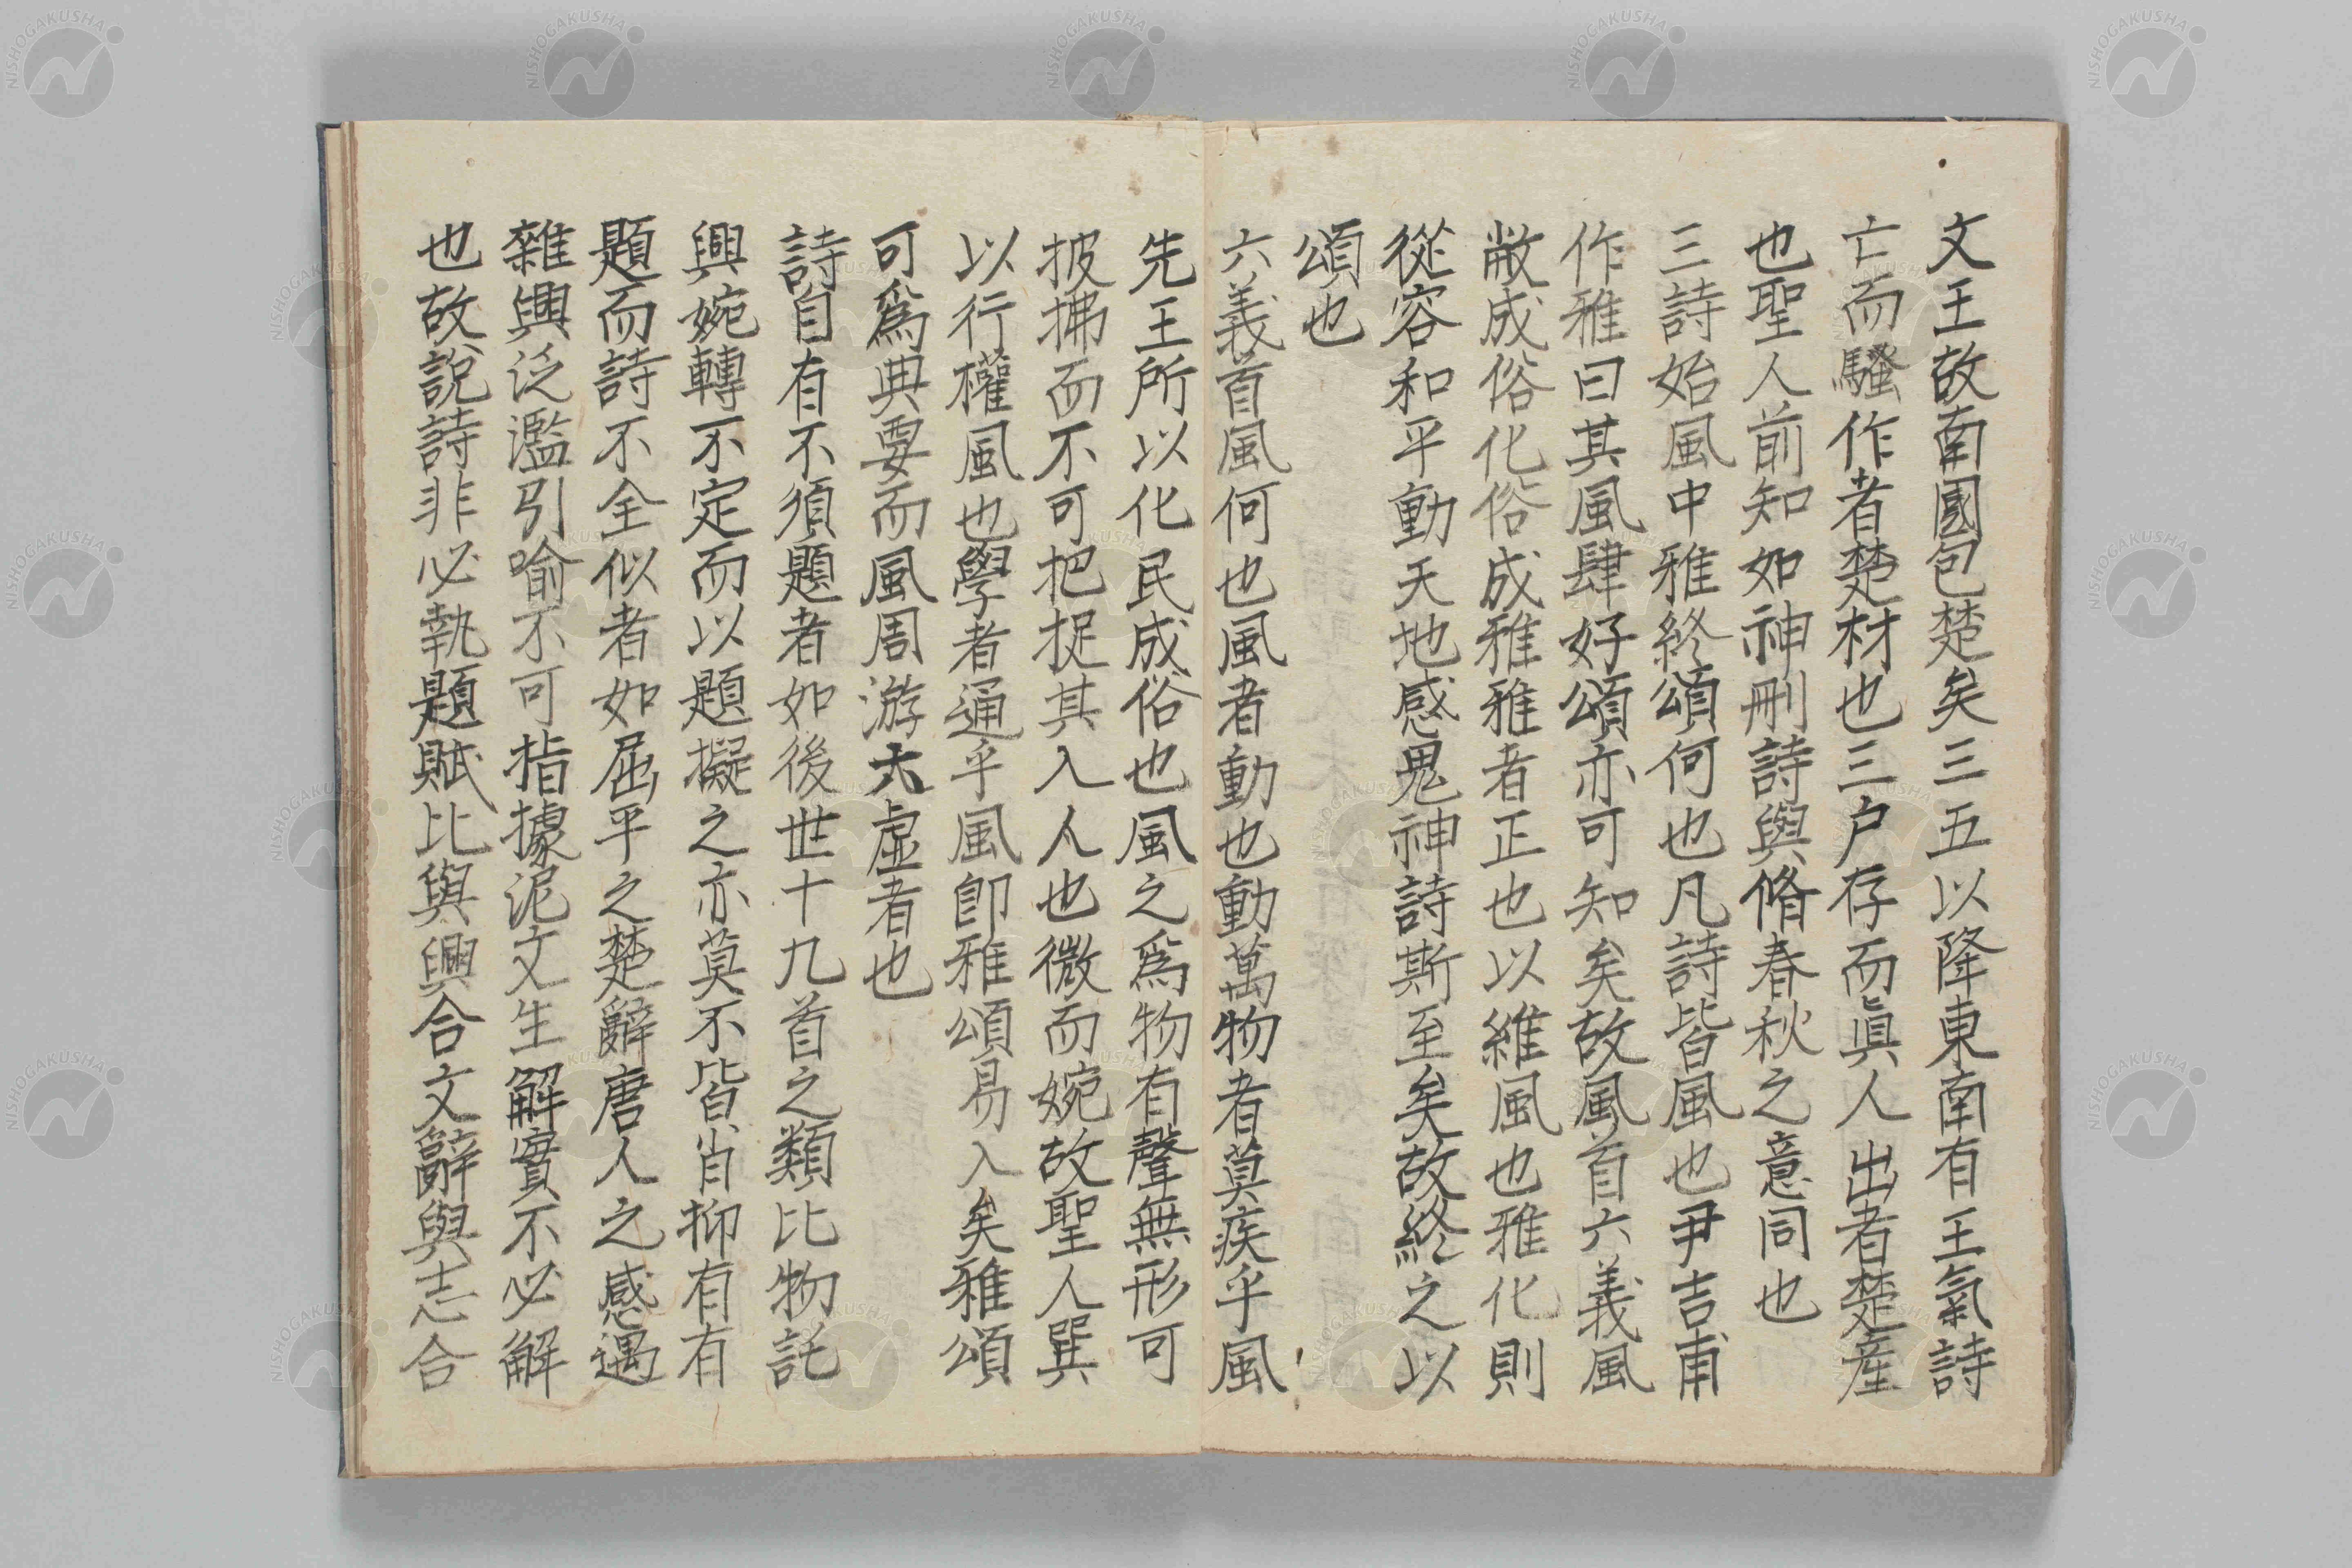 文王故南國包楚矣三五以降東南有王氣詩
亡而騷作者楚材也三户存而眞人出者楚產
也聖人前知如神刪詩與脩春秋之意同也
三詩始風中雅終頌何也凡詩皆風也尹吉甫
作雅曰其風肆好頌亦可知矣故風首六義風
敝成俗化俗成雅雅者正也以維風也雅化則
從容和平動天地感鬼神詩斯至矣故終之以
頌也
六義首風何也風者動也動萬物者莫疾乎風
先王所以化民成俗也風之爲物有聲無形可
披拂而不可把捉其入人也微而婉故聖人巽
以行權風也學者通乎風卽雅頌易入矣雅頌
可爲典要而風周游大虛者也
詩自有不須題者如後世十九首之類比物託
興婉轉不定而以題擬之亦莫不皆肖抑有有
題而詩不全似者如屈平之楚辭唐人之感遇
雜興泛濫引喻不可指據泥文生解實不必解
也故說詩非必執題賦比與興合文辭與志合
NISHOGAKUSHA